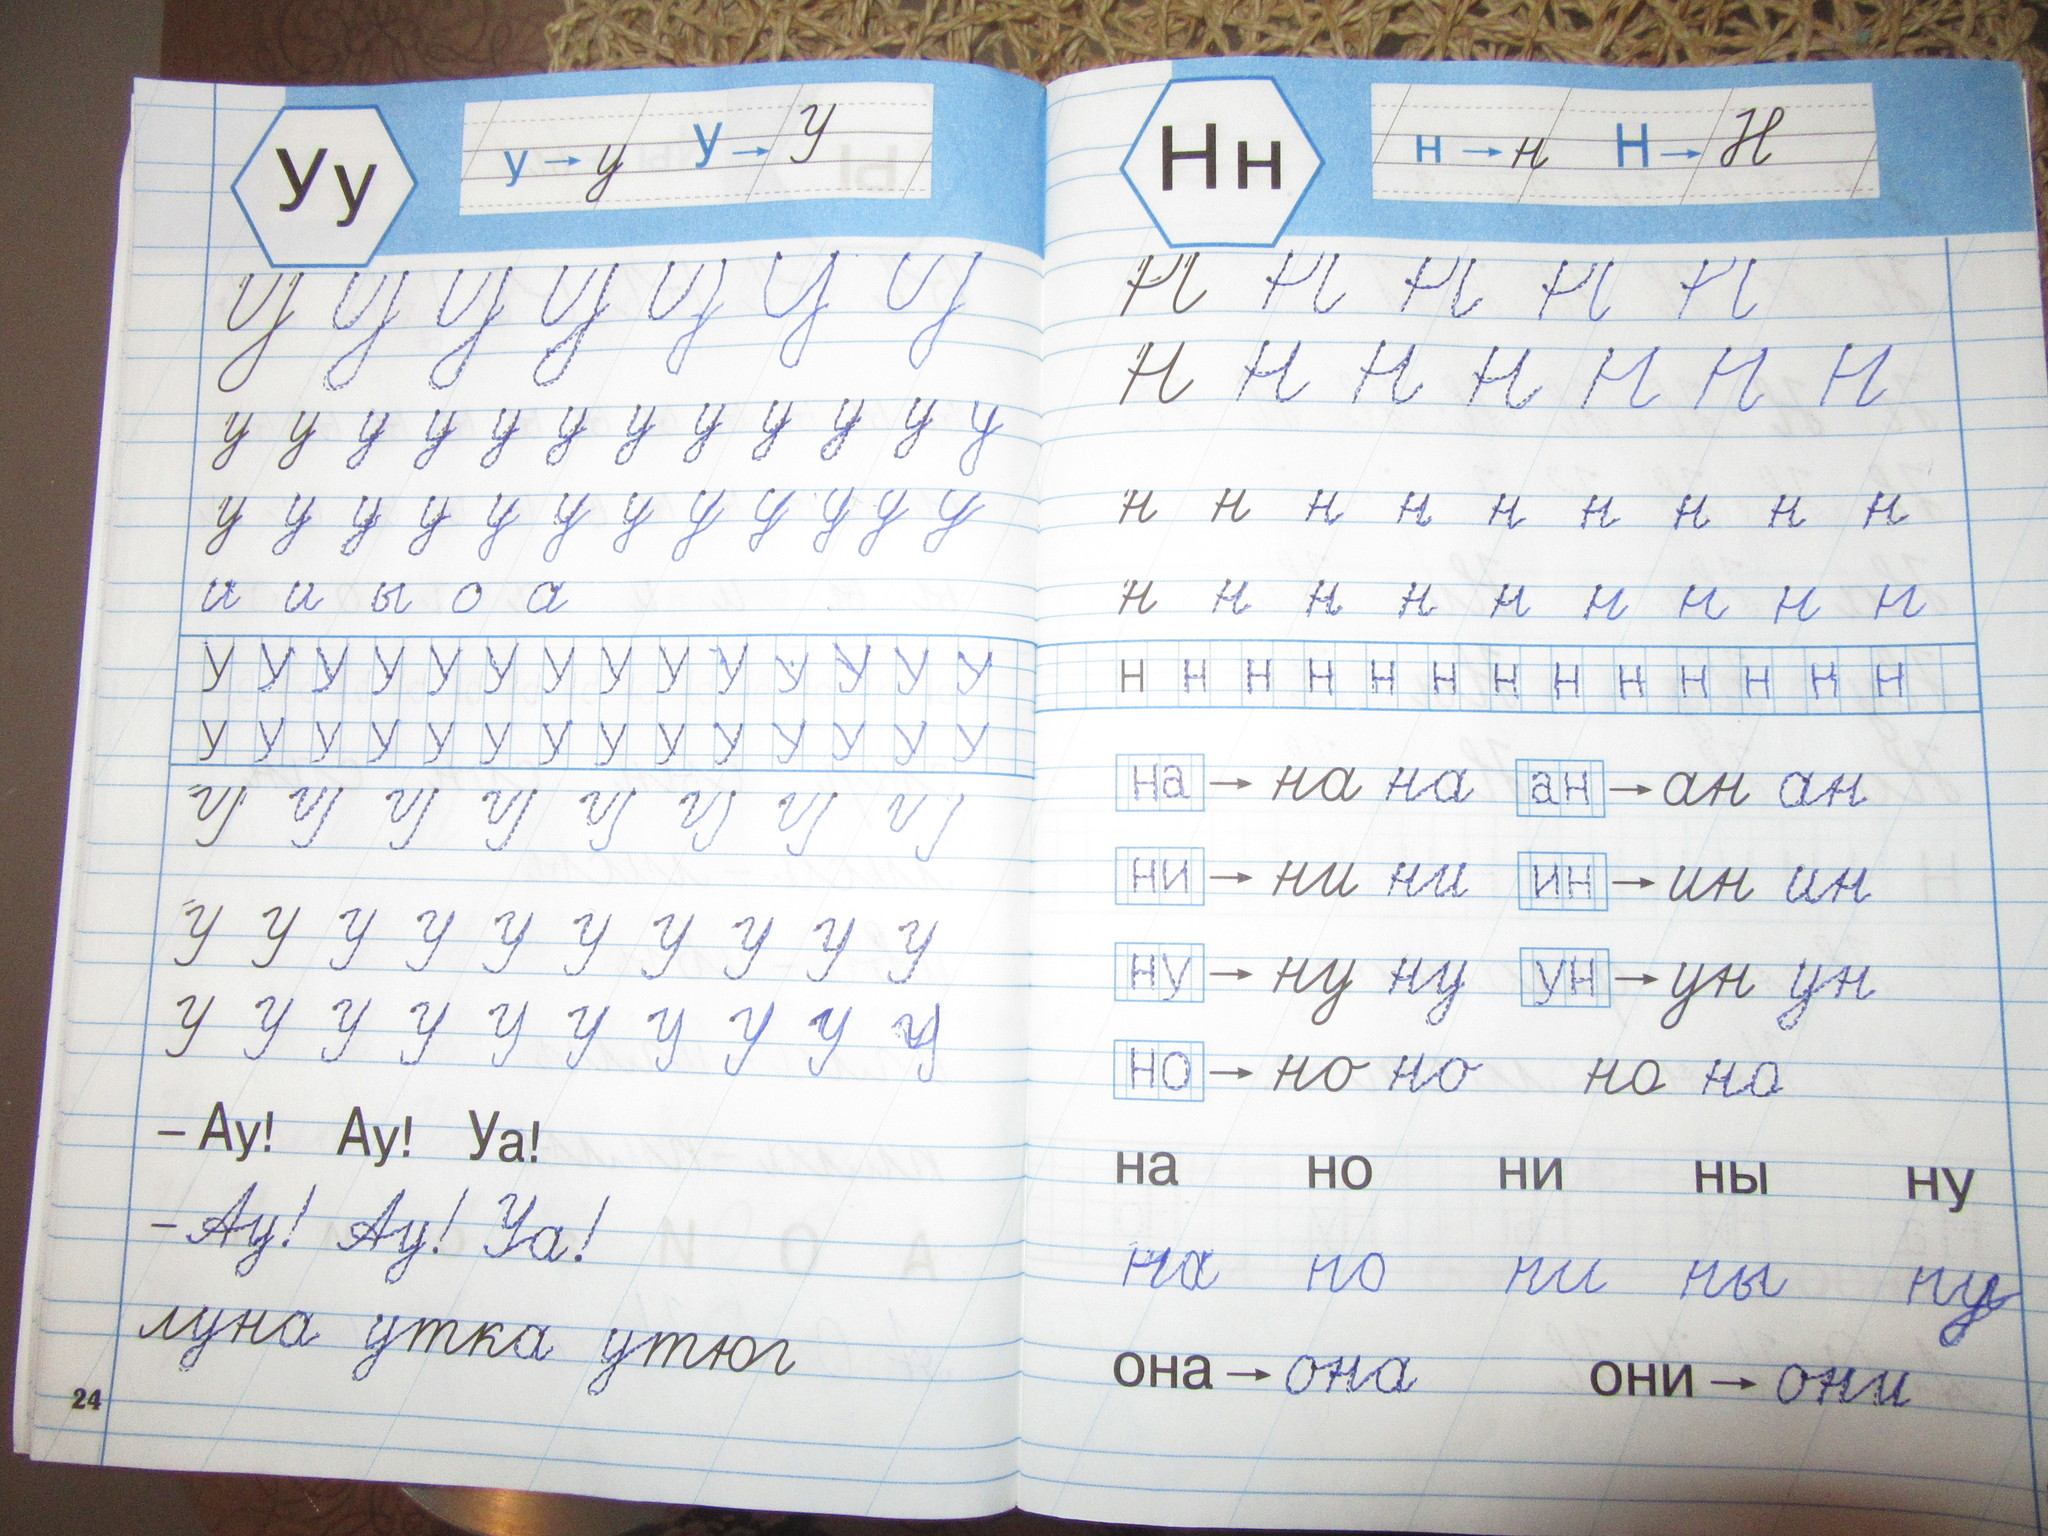 Уу
у → у У → У
У У У У У У У
у у у у у у у у у у у у
у у у у у у у у у у у у
и и ы о а
у у у у у у у у у у у у у у
у у у у у у у у у у у у у у
У У У У У У У У У У
У У У У У У У У У У
– Ау! Ау! Уа!
– Ау! Ау! Уа!
луна утка утюг
24
Нн
н → н Н → Н
Н Н Н Н Н Н Н
н н н н н н н н н
н н н н н н н н н
н н н н н н н н н н н н н
на → на на ан → ан ан
ни → ни ни ин → ин ин
ну → ну ну ун → ун ун
но → но но но но
на но ни ны ну
на но ни ны ну
она → она они → они